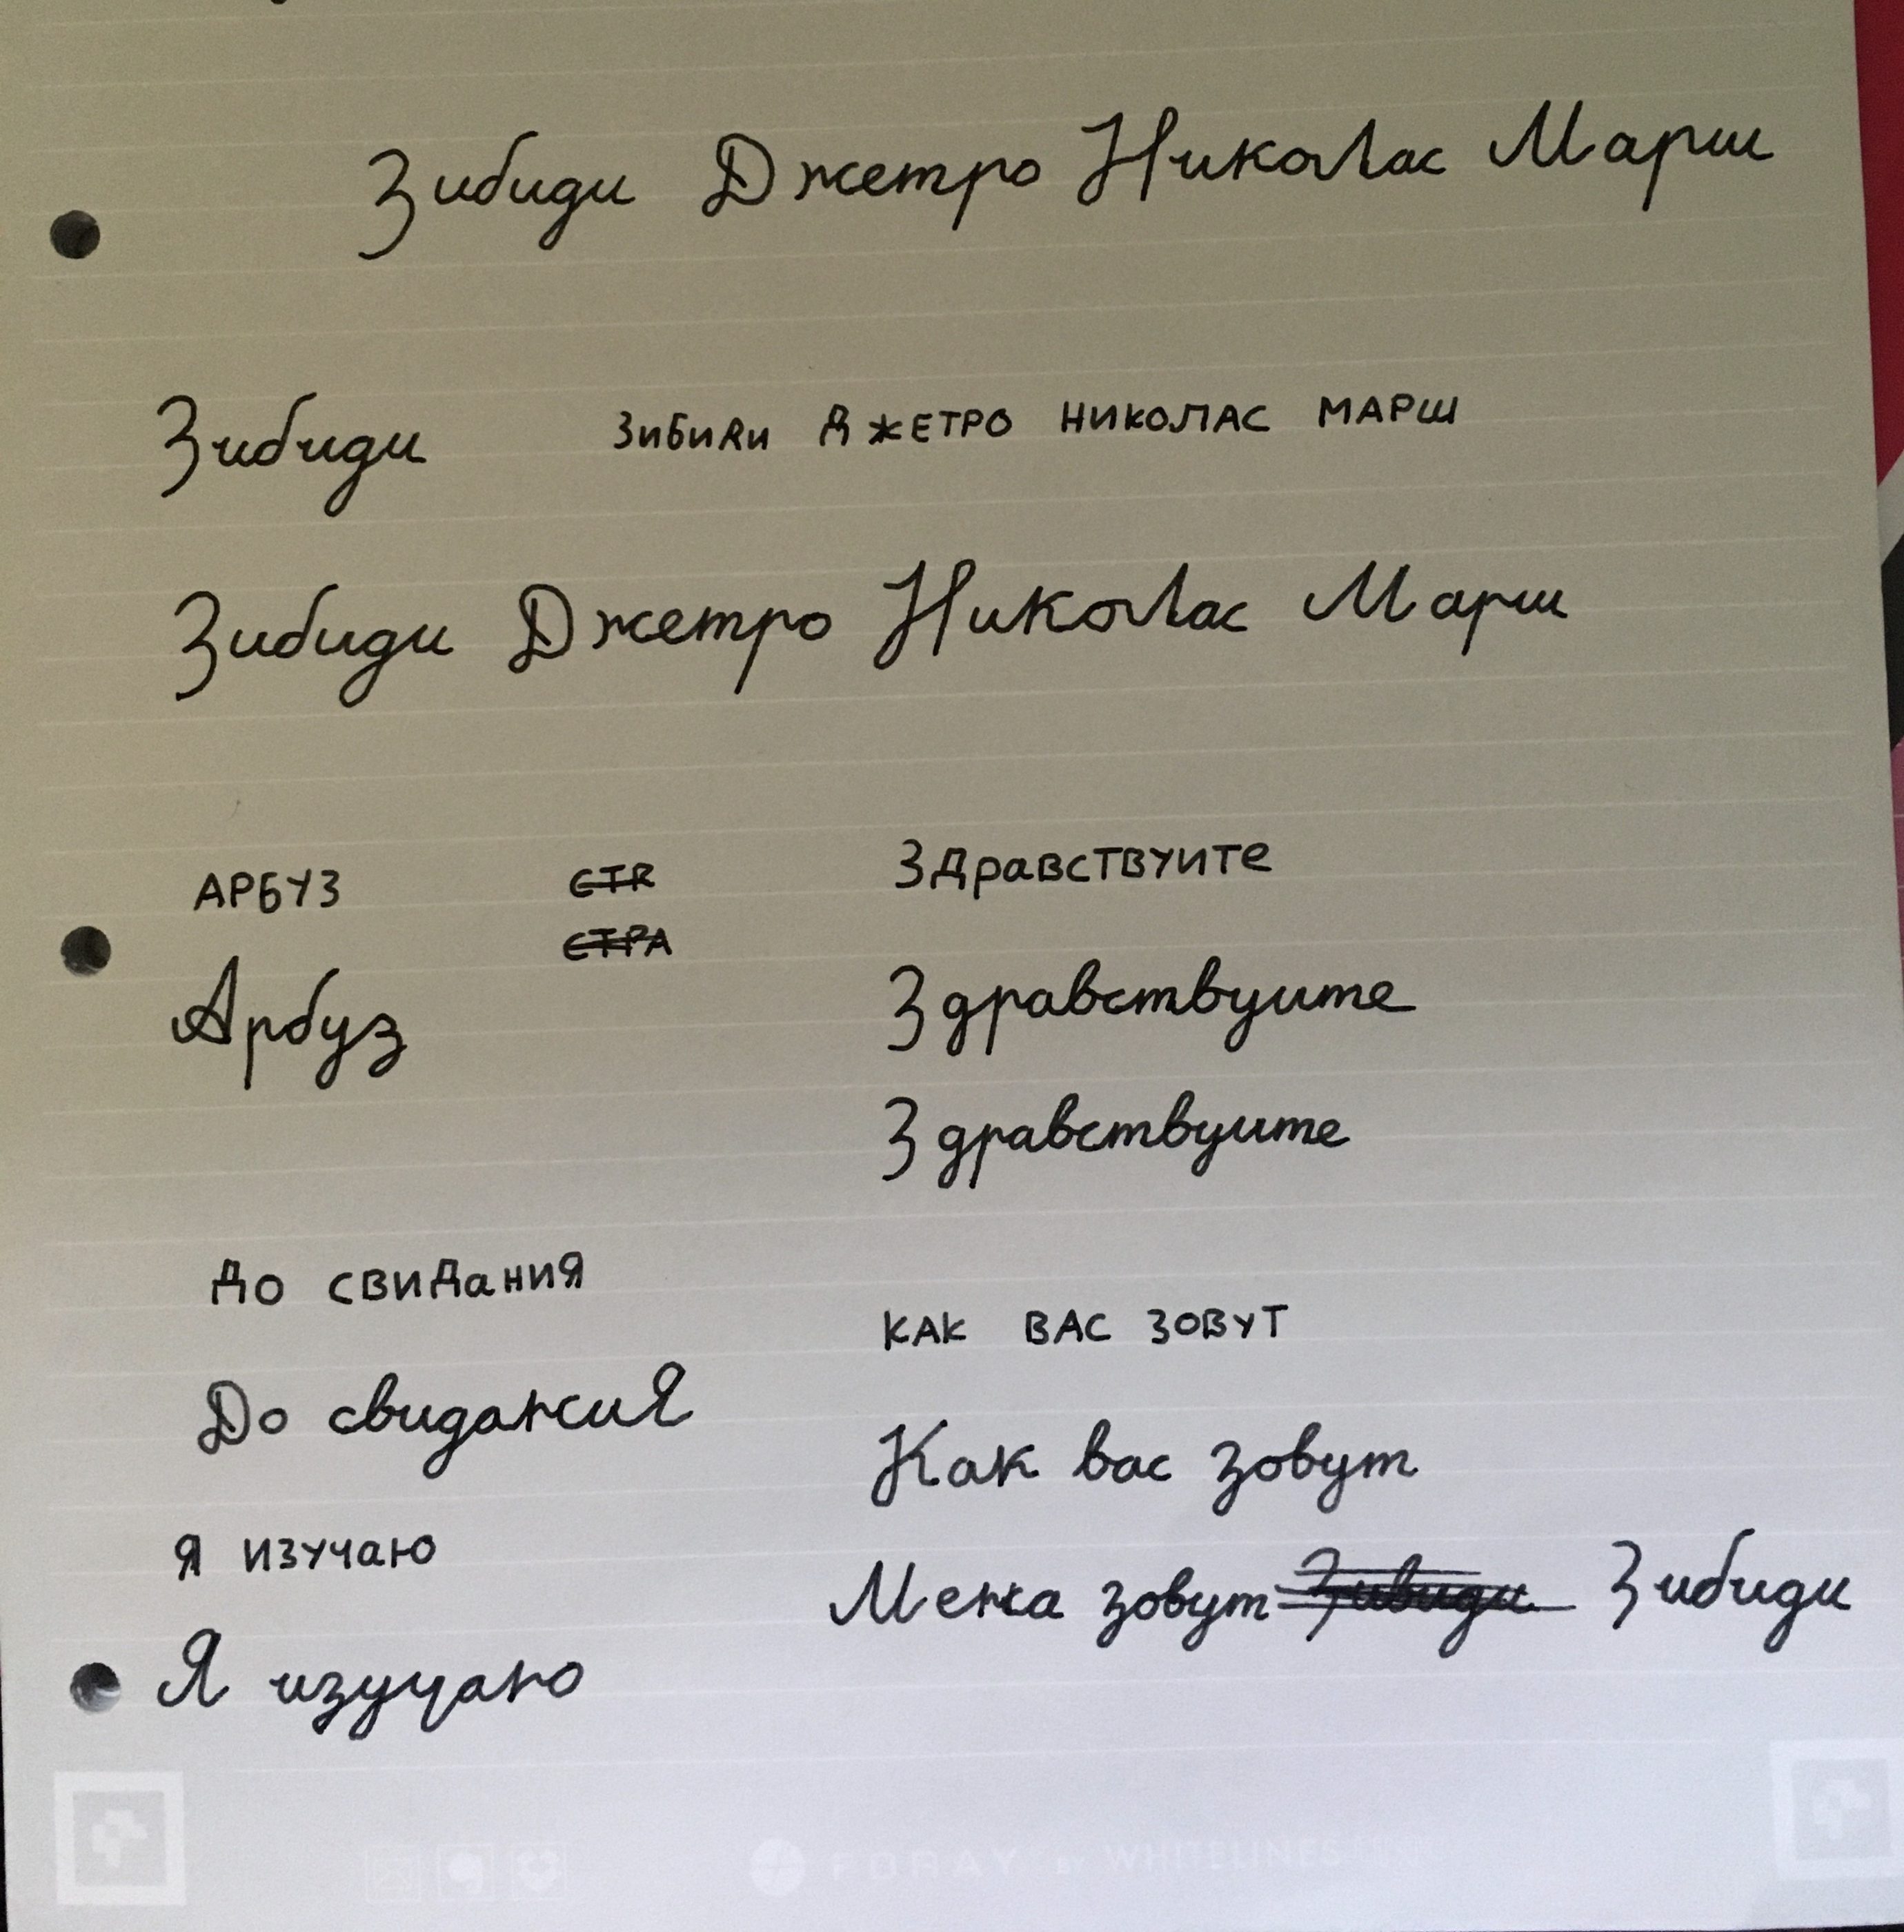 Зибиди Джетро Николас Марш
Зибиди
ЗИБИДИ ДЖЕТРО НИКОЛАС МАРШ
Зибиди Джетро Николас Марш
АРБУЗ
СТR
СТРА
Арбуз
ЗДравствуите
Здравствуите
Здравствуите
До свидания
До свидания
КАК ВАС ЗОВУТ
Как вас зовут
Я изучаю
Я изучаю
Мена зовут Зивиди Зибиди
FORAY BY WHITELINES